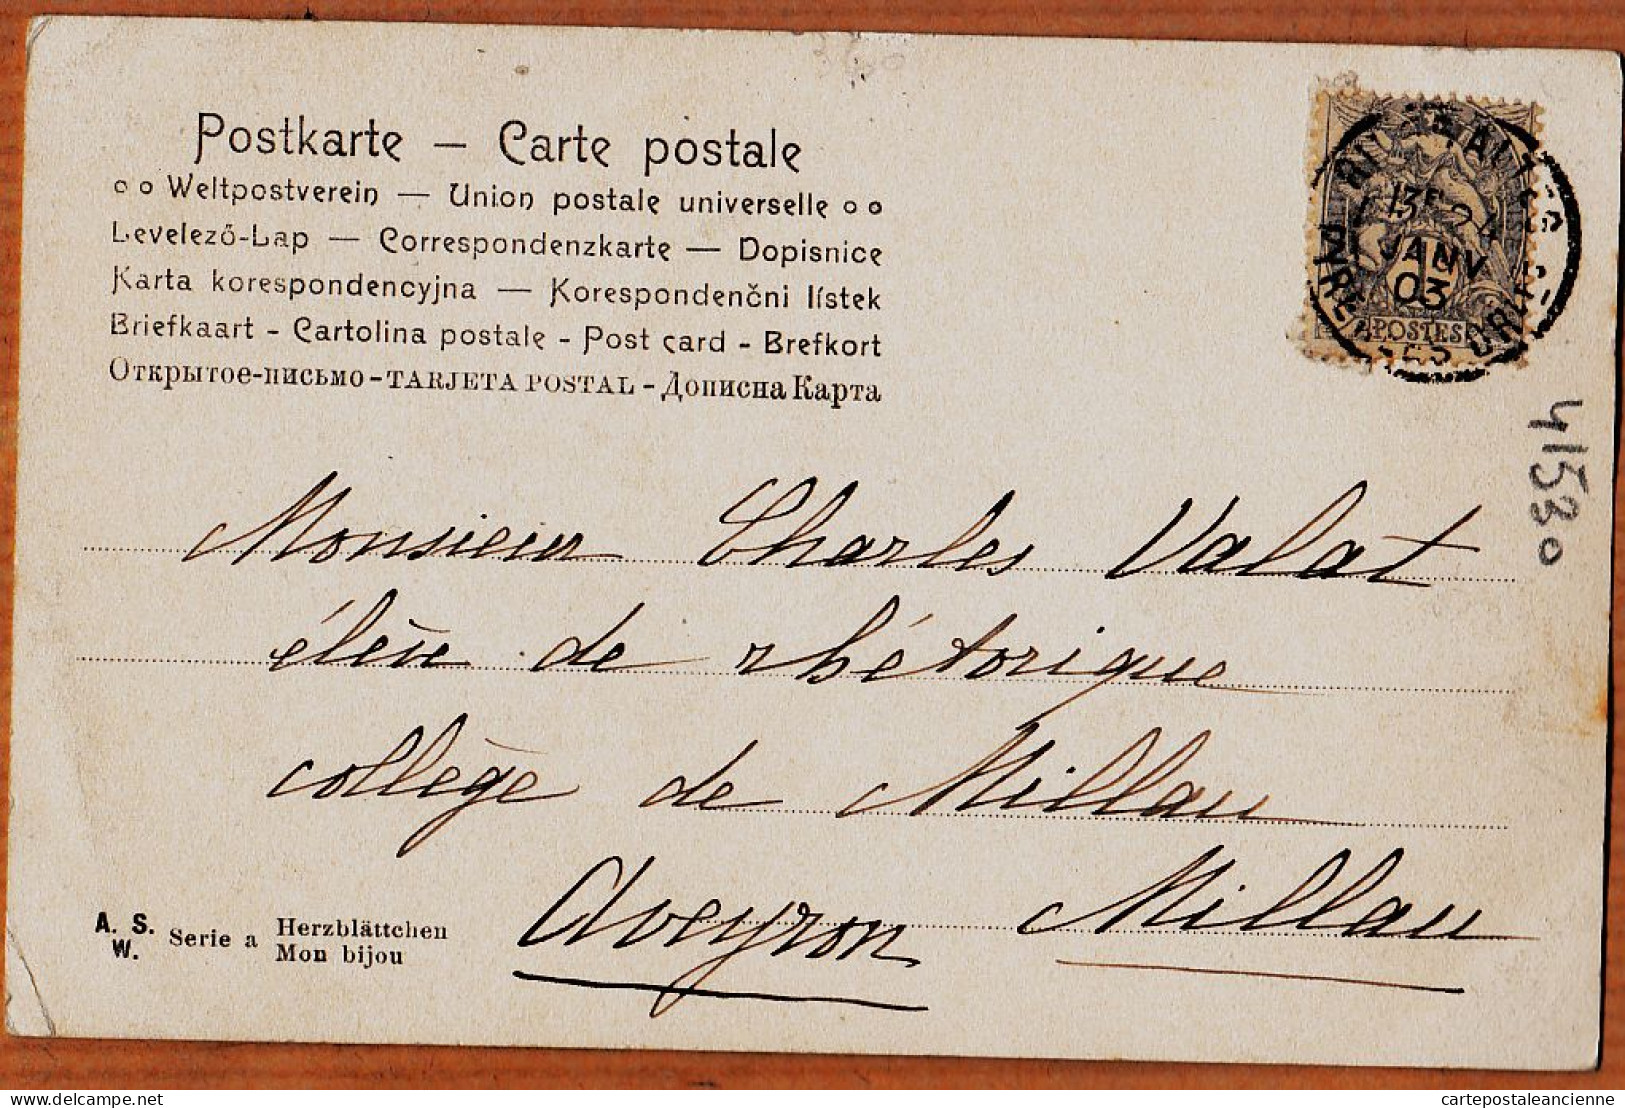 Postkarte — Carte postale
o o Weltpostverein — Union postale universelle o o
Levelező-Lap — Correspondenzkarte — Dopisnice
Karta korespondencyjna — Korespondenčni lístek
Briefkaart - Cartolina postale - Post card - Brefkort
Открытое-письмо - TARJETA POSTAL - Дописна Карта
13E 24
JANV
03
POSTES
41530
Monsieur Charles Valat
élève de rhétorique
collège de Millau
Aveyron Millau
A. S.
W.
Serie a
Herzblättchen
Mon bijou
delcampe.net
cartepostaleancienne